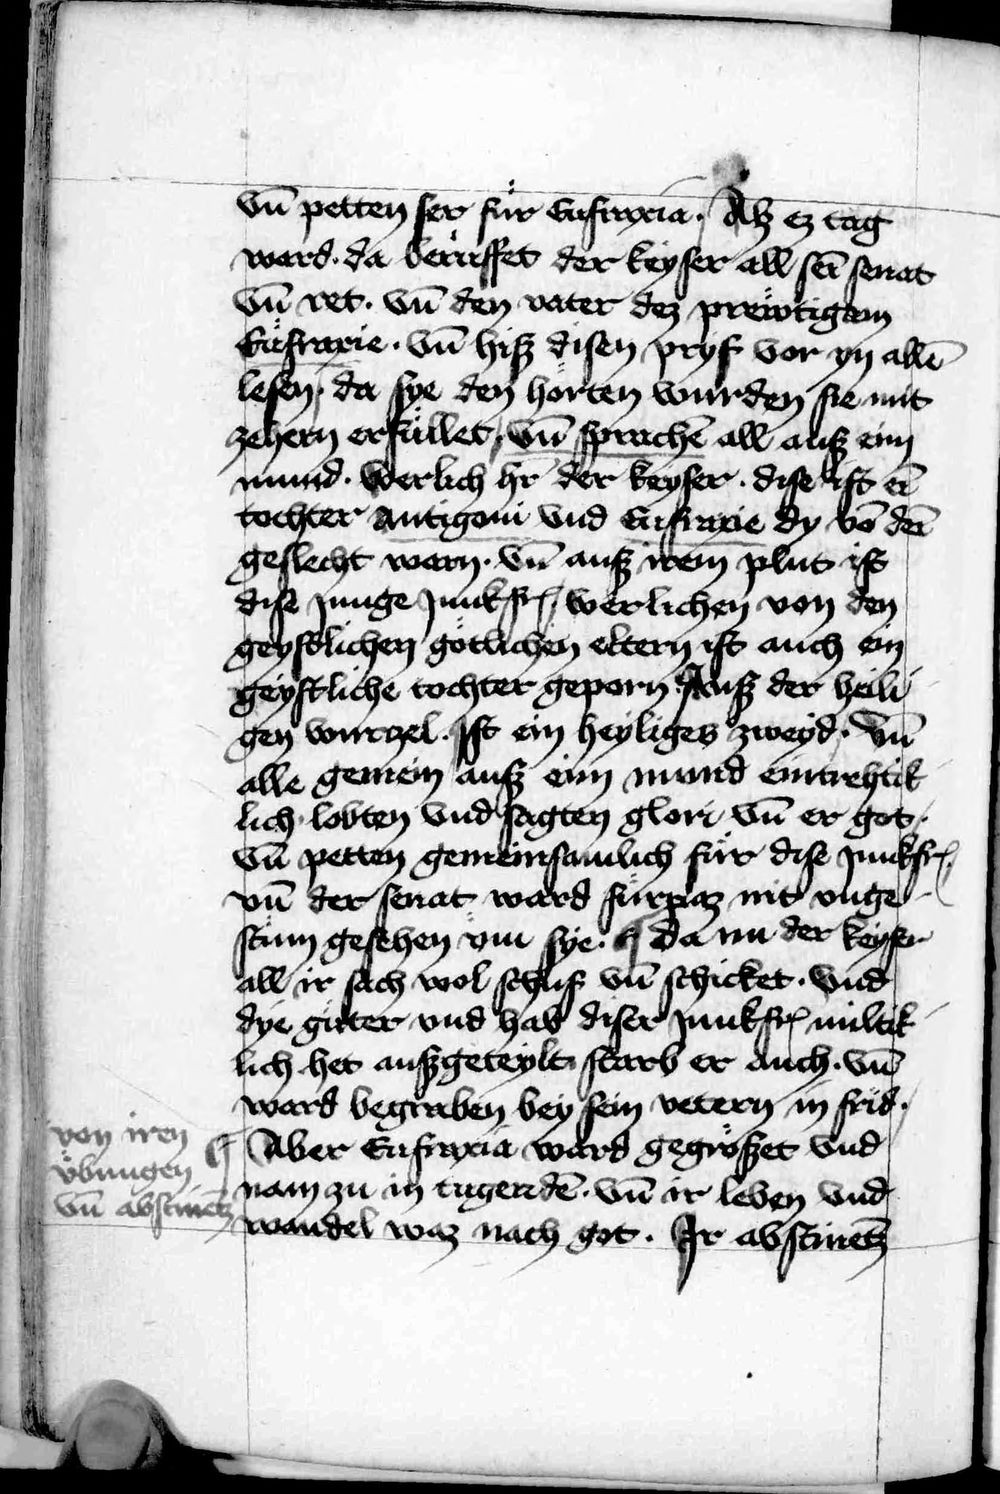 vn̄ petten ser fur̊ Eufraxia. Alz ez tag
ward. da berůffet der keyser all sēi senat
vn̄ ret. vn̄ den vater dez prewtigam
Eufraxie. vn̄ hisz disen pryf vor yn allē
lesen, da sye den hörten wurden sie mit
zehern erfüllet, vn̄ sprachē all ausz eim
mund. Werlich hr̄ der keyser. dise ist eī
tochter Antigoni vnd Eufraxie dy vō dēi
geslecht warn. vn̄ ausz irem plut ist
dise Junge Junkfr̄, werlichen von den
geystlichen götlichen eltern ist auch ein
geystliche tochter geporn Ausz der heili
gen wurzel. Ist ein heyliges zweyd. Vn̄
alle gemein ausz eim mund eintrehtik
lich lobten vnd sagten glori vn̄ er got,
vn̄ petten gemeinsamlich für dise Junkfr̄,
vn̄ der senat ward fürpaz nit vnge
stüm gesehen vm sye. ¶ Da nu der keyser
all ir sach wol schuf vn̄ schicket. vnd
dye güter vnd hab diser Junkfr̄ miltik
lich het auszgeteylt starb er auch. vn̄
ward begraben bey sein vetern in frid.
¶ Aber Eufraxia ward gegröszet vnd
nam zu in tugendē. vn̄ ir leben vnd
wandel waz nach got. Ir abstinētz
von iren
übungen
vn̄ abstinētz